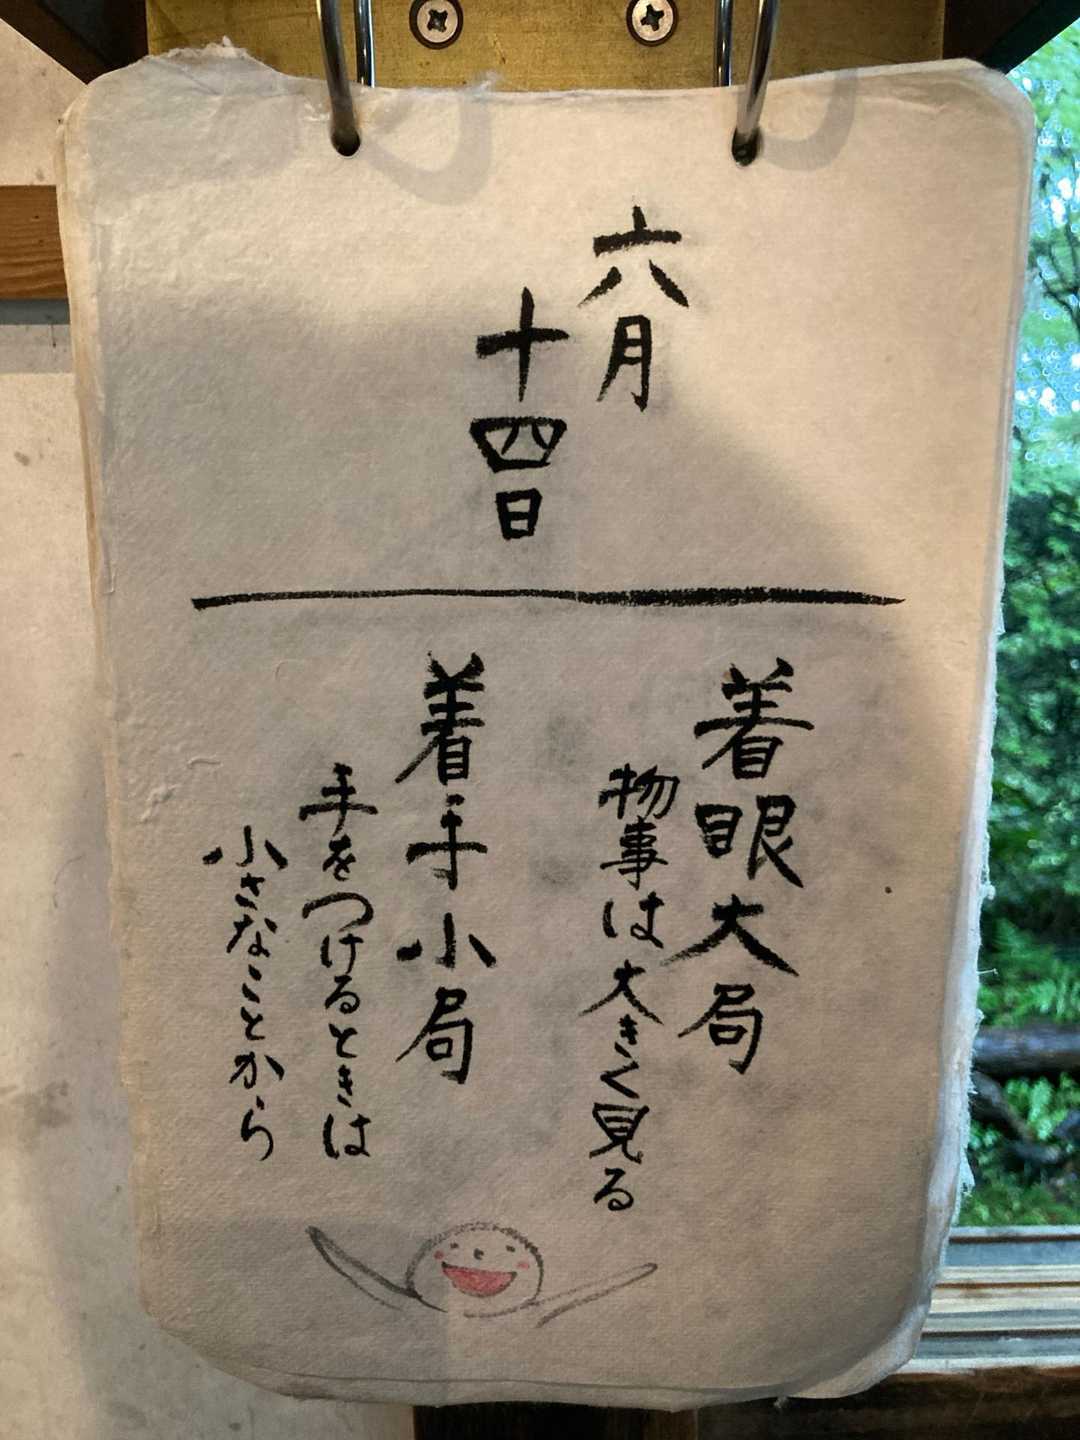 六月
十四日
着眼大局
物事は大きく見る
着手小局
手をつけるときは
小さなことから